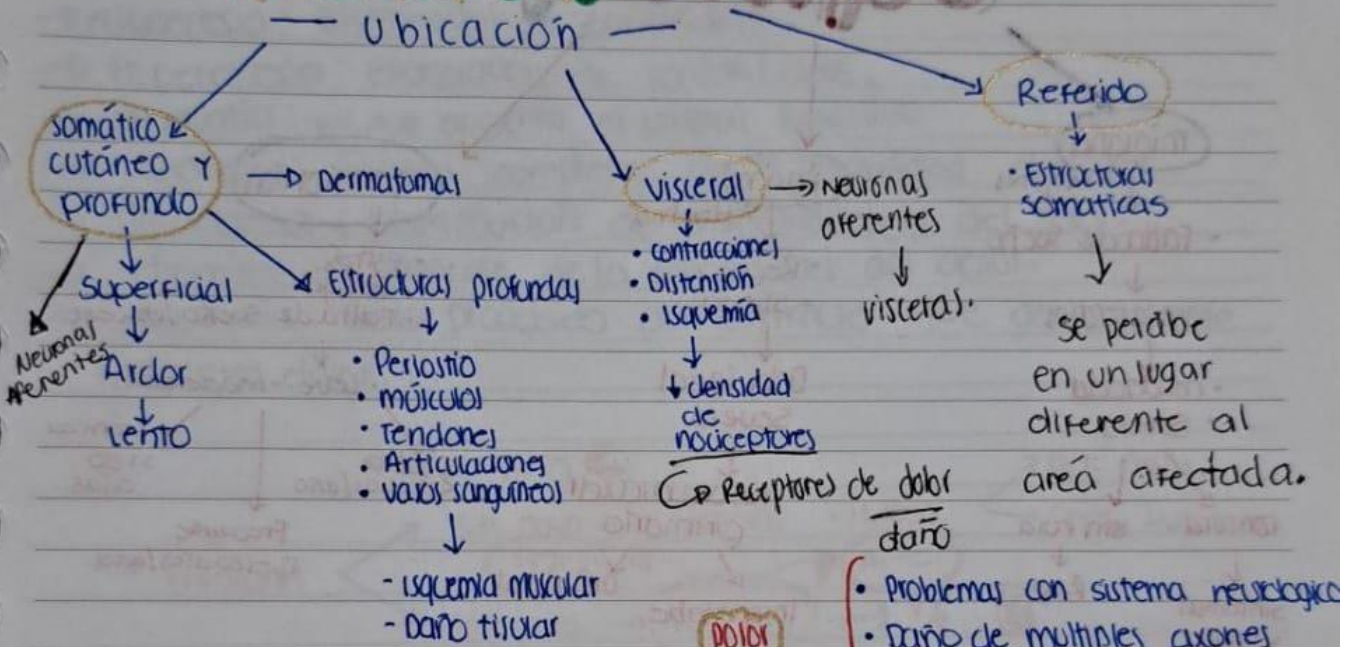 Ubicación
somático
cutáneo y
profundo
Dermatomas
Superficial
Ardor
Lento
Neuronas
Aferentes
Estructuras profundas
• Periostio
• músculos
• Tendones
• Articulaciones
• vasos sanguíneos
- Isquemia muscular
- Daño tisular
visceral
• contracciones
• Distensión
• Isquemía
↓ densidad
de
nociceptores
Receptores de dolor
daño
Neuronas
aferentes
visceras.
Referido
• Estructuras
somaticas
se percibe
en un lugar
diferente al
areá afectada.
Dolor
• Problemas con sistema neurologico
• Daño de multiples axones